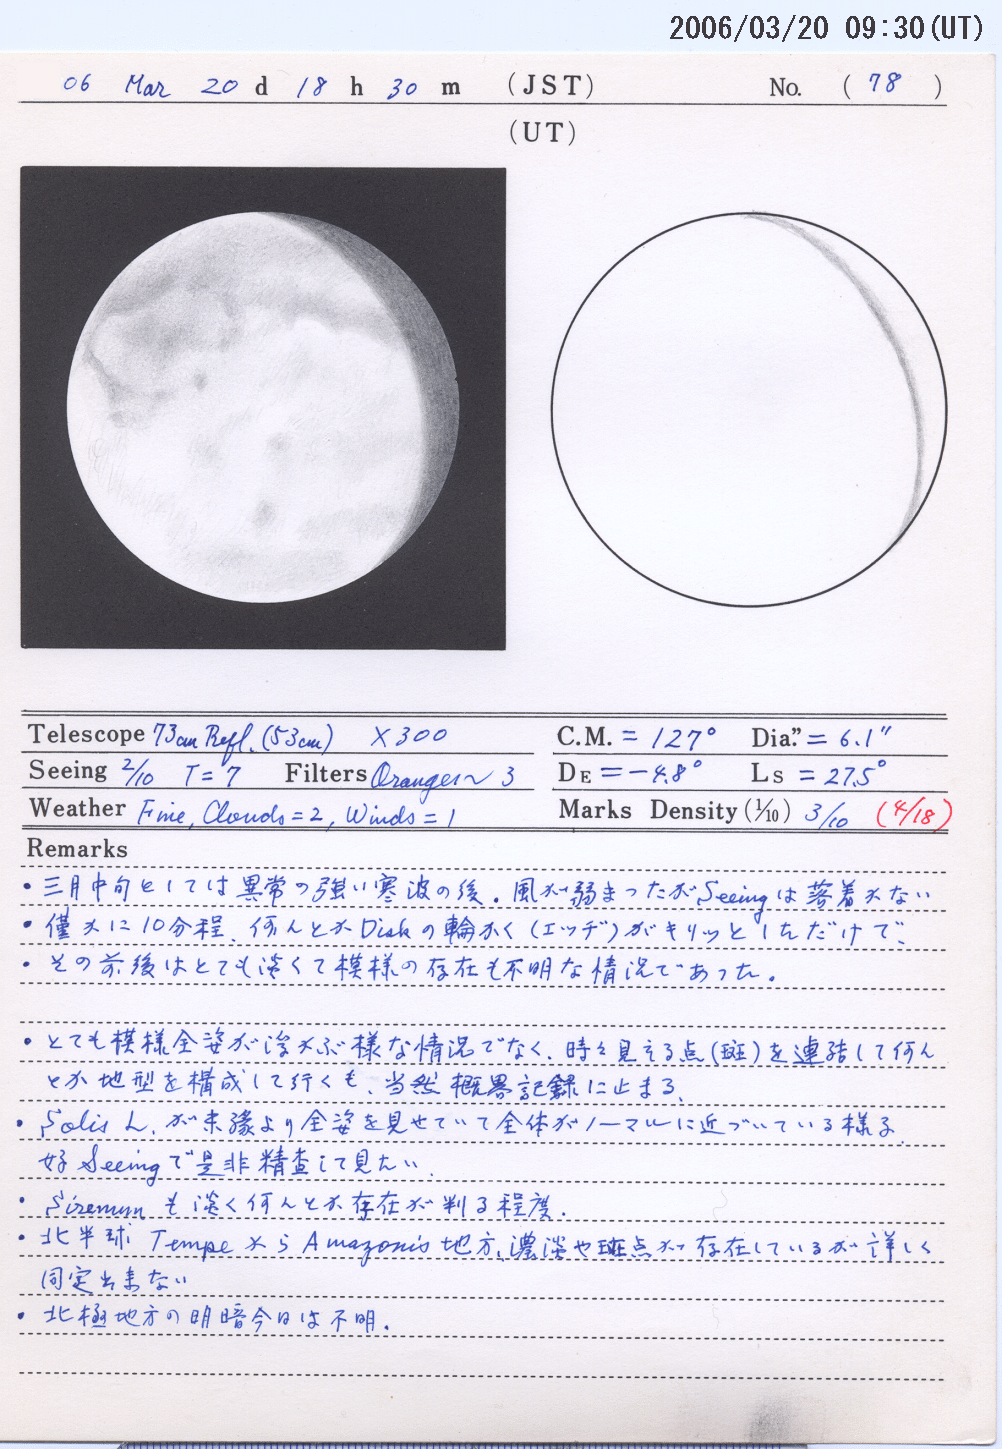 2006/03/20 09:30(UT)
06 Mar 20 d 18 h 30 m (JST) No. ( 78 )
(UT)
Telescope 73cm Refl. (53cm) ×300
C.M. = 127° Dia." = 6.1"
Seeing 2/10 T = 7 Filters Orange~ 3
DE = -4.8° Ls = 27.5°
Weather Fine, Clouds=2, Winds=1
Marks Density (1/10) 3/10 (4/18)
Remarks
・三月中旬としては異常の強い寒波の後。風が弱まったがSeeingは落着かない
・僅かに10分程、何んとかDiskの輪かく(エッヂ)がキリッとしただけで、
・その前後はとても淡くて模様の存在も不明な情況であった。
・とても模様全姿が浮かぶ様な情況でなく、時々見える点(斑)を連結して何ん
とか地型を構成して行くも、当然概畧記録に止まる。
・Solis L. が東縁より全姿を見せていて全体がノーマルに近づいている様子。
好Seeingで是非精査して見たい。
・Sirenum も淡く何んとか存在が判る程度。
・北半球 TempeからAmazonis地方、濃淡や斑点が存在しているが詳しく
同定出来ない
・北極地方の明暗今日は不明。